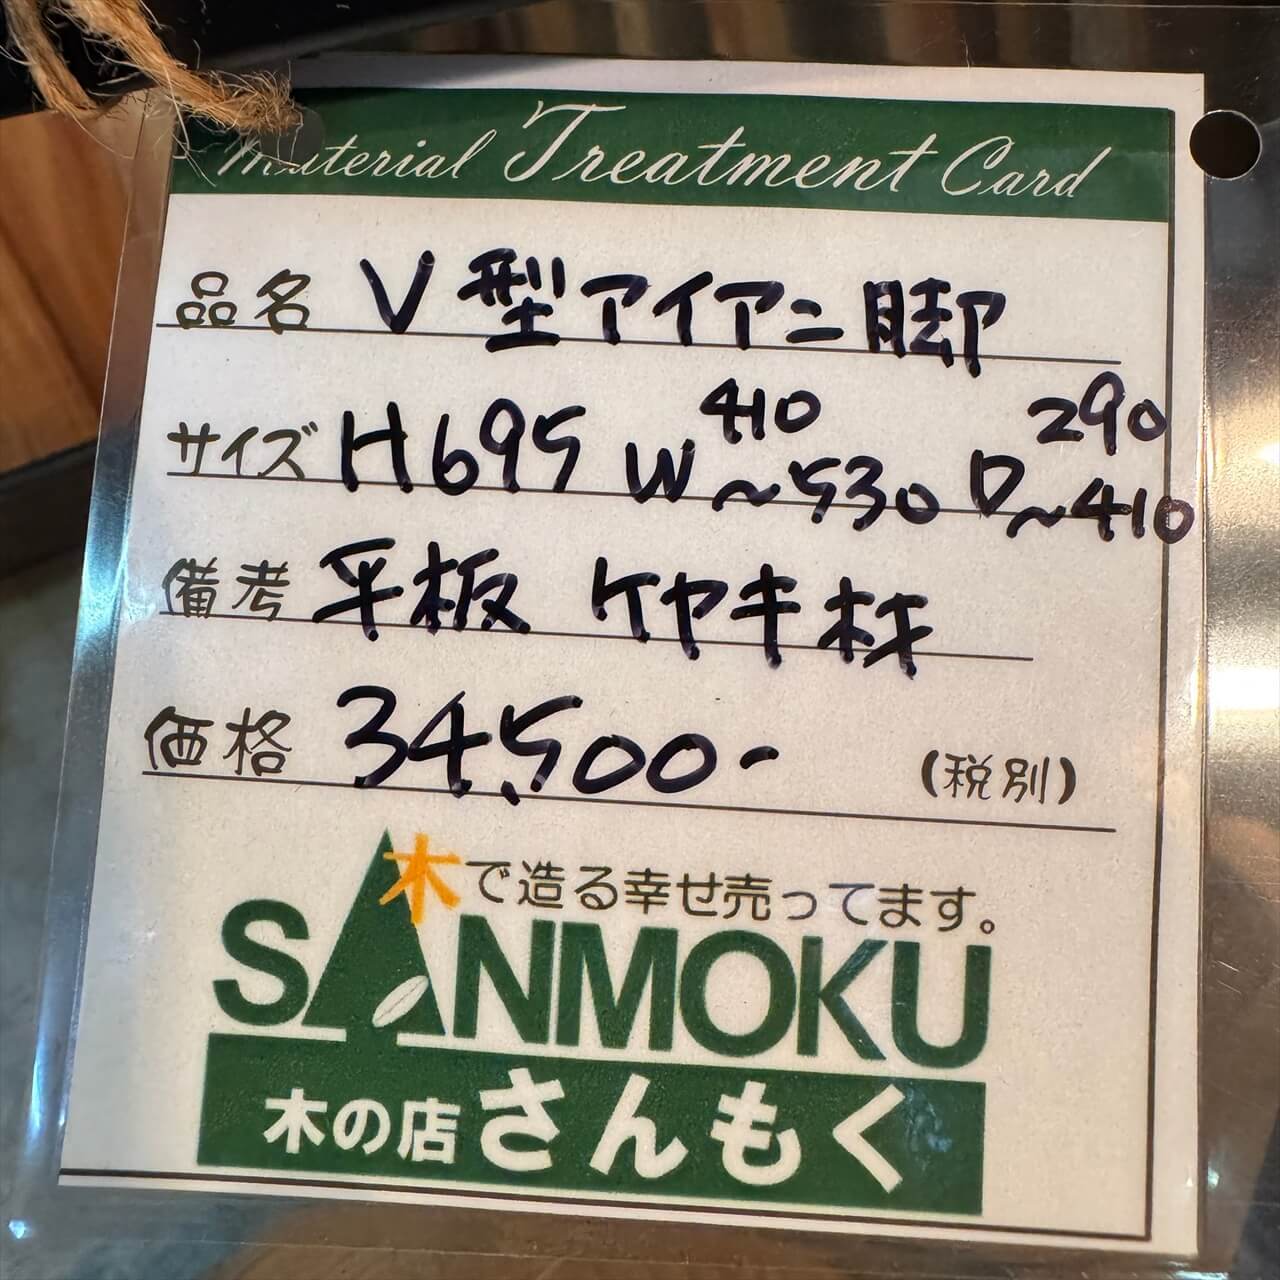 Material Treatment Card
品名 V型アイアン脚
サイズ H695 W410~530 D290~410
備考 平板 ケヤキ材
価格 34,500- (税別)
木で造る幸せ売ってます。
SANMOKU
木の店さんもく